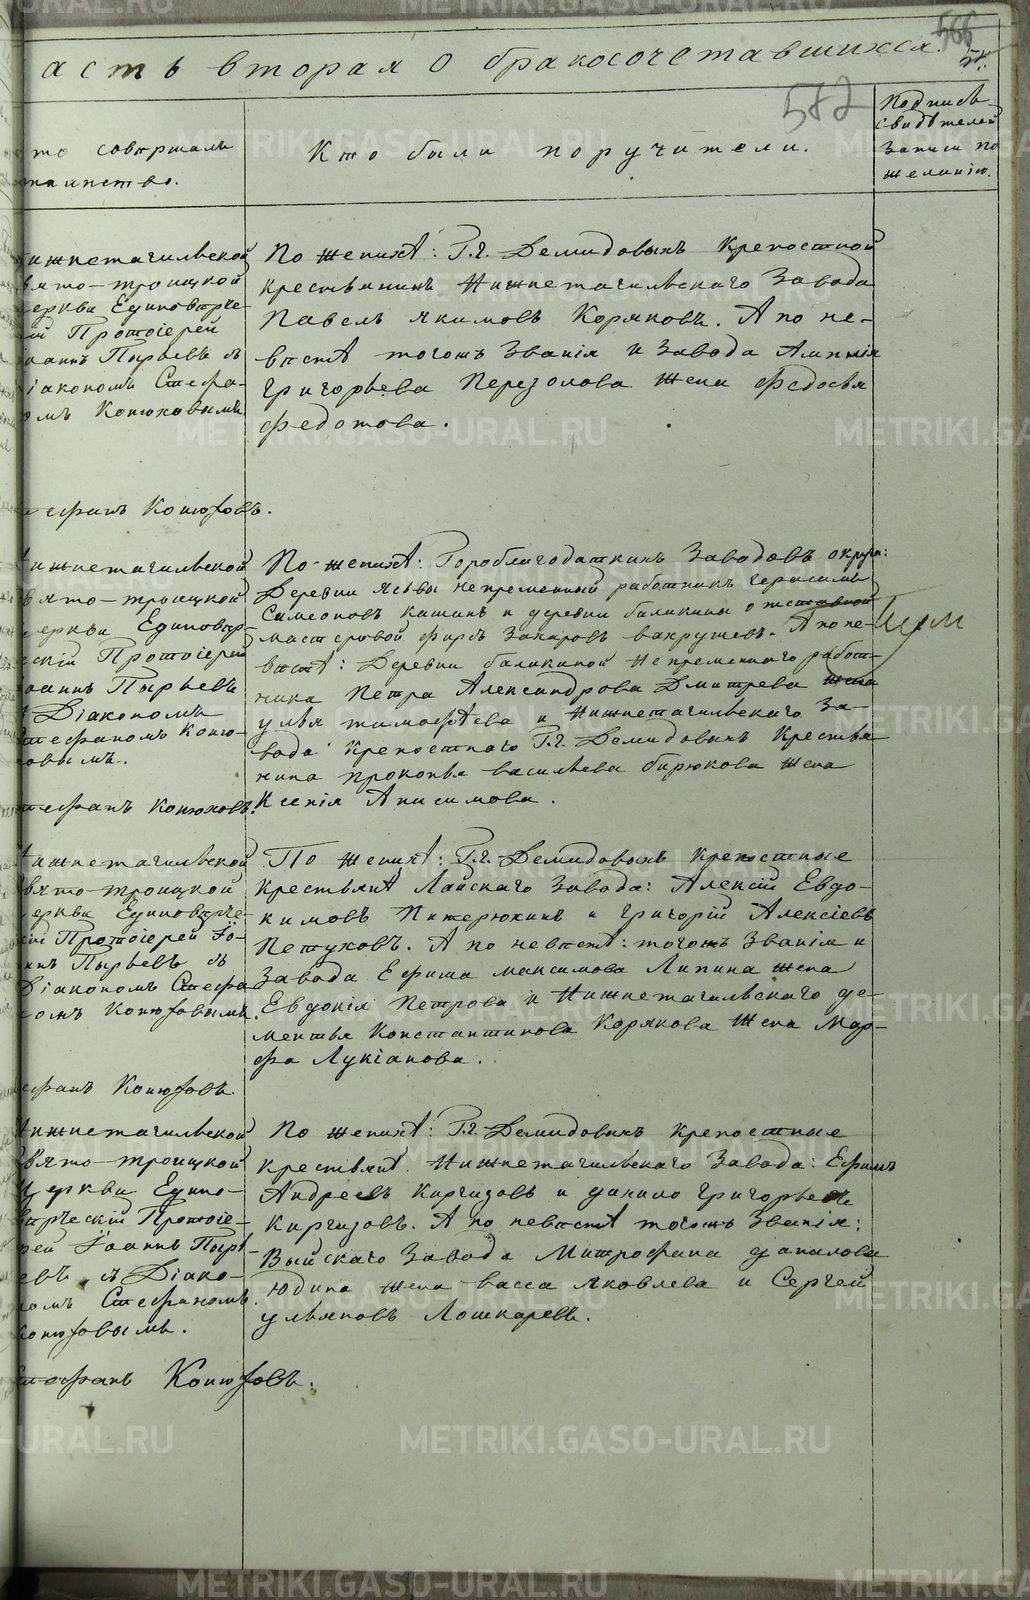 566
асть вторая о бракосочетавшихся.
582
то совершалъ
таинство.
Кто были поручители.
Подпись
свидѣтелей
записи по
желанію.
ижнетагильской
вято-троицкой
еркви Единовѣрче-
ій Протоіерей
оаннъ Пырьевъ съ
іакономъ Стефа-
омъ Конюховымъ
По женихѣ: Г.г. Демидовыхъ Крепостной
крестьянинъ Нижнетагильскаго Завода
Павелъ Якимовъ Коряковъ. А по не-
вѣстѣ тогожъ Званія и Завода
Григорьева Перезолова Жена Федосья
Федотова.
ефанъ Конюховъ.
ижнетагильской
вято-троицкой
еркви Единовѣр-
скій Протоіерей
оаннъ Пырьевъ
Діакономъ
тефаномъ Коню-
овымъ.
По женихѣ: Гороблагодатскихъ Заводовъ округа:
Деревни Ясвы непременный работникъ Герасимъ
Симеоновъ Кашинъ и деревни балакины отставной
мастеровой Фирсъ Захаровъ вахрушевъ. А по не-
вѣстѣ: Деревни балакиной Непременнаго работ-
ника Петра Александрова Дмитрева Жена
улья тимофѣева и Нижнетагильскаго За-
вода Крепостнаго Г.г. Демидовыхъ Крестья
нина прокопья васильева бирюкова Жена
Ксенія Анисимова.
тефанъ Конюховъ.
ижнетагильской
вято-троицкой
еркви Единовѣрче-
кій Протоіерей Іо-
ннъ Пырьевъ съ
Діакономъ Стефа
омъ Конюховымъ.
По Женихѣ: Г.г. Демидовыхъ Крепостные
Крестьянѣ Лайскаго Завода: Алексій Евдо-
кимовъ Питерюхинъ и Григорій Алексіевъ
Петуховъ. А по невѣстѣ: тогожъ Званія и
Завода Ефима Максимова Липина Жена
Евдокія Петрова и Нижнетагильскаго де-
ментья Константинова Корякова Жена Мар-
фа Лукіанова.
ефанъ Конюховъ.
ижнетагильской
вято-троицкой
Церкви Едино-
вѣрческій Протоіе-
рей Іоаннъ Пырь-
евъ съ Діако-
номъ Стефаномъ
Конюховымъ.
По женихѣ: Г.г. Демидовыхъ Крепостные
Крестьянѣ. Нижнетагильскаго Завода: Ефимъ
Андреевъ Киргизовъ и данило Григорьевъ
Киргизовъ. А по невѣстѣ тогожъ Званія:
Выйскаго Завода Митрофана данилова
Юдина Жена васса Яковлева и Сергей
ульяновъ Лошкаревъ.
тефанъ Конюховъ.
METRIKI.GASO-URAL.RU